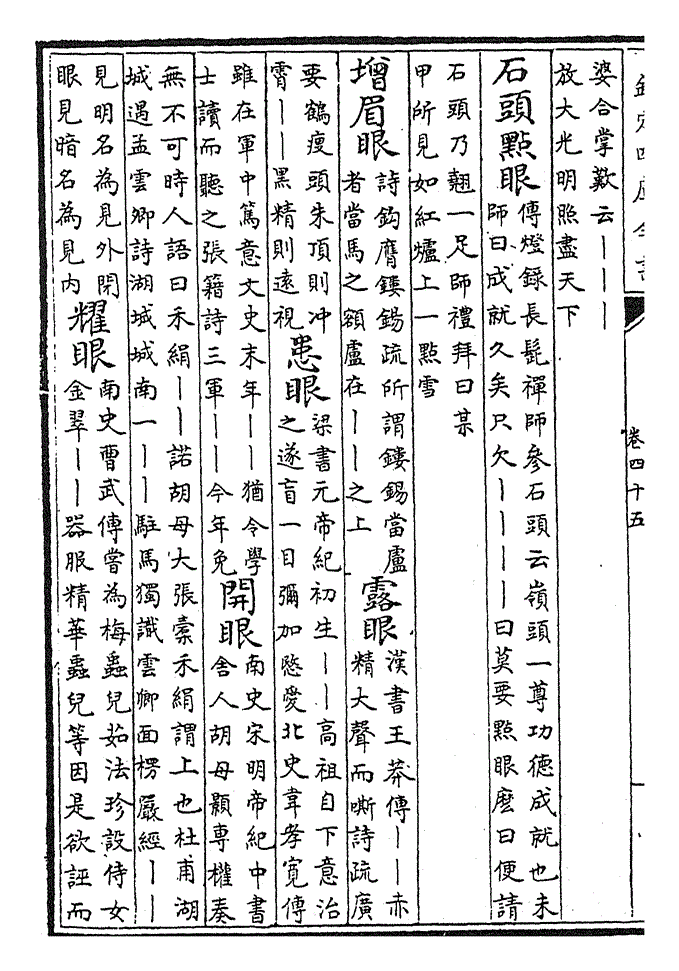 欽定四庫全書
卷四十五
婆合掌歎云｜｜｜
放大光明照盡天下
石頭點眼
傳燈錄長髭禪師參石頭云嶺頭一尊功德成就也未
師曰成就久矣只欠｜｜｜｜曰莫要點眼麽曰便請
石頭乃翹一足師禮拜曰某
甲所見如紅爐上一點雪
增眉眼
詩鈎膺鏤錫疏所謂鏤錫當盧
者當馬之額盧在｜｜之上
露眼
漢書王莽傳｜｜赤
精大聲而嘶詩疏廣
要鶴瘦頭朱頂則冲
霄｜｜黑精則遠視
患眼
梁書元帝紀初生｜｜高祖自下意治
之遂盲一目彌加愍愛北史韋孝寛傳
雖在軍中篤意文史末年｜｜猶令學
士讀而聽之張籍詩三軍｜｜今年免
開眼
南史宋明帝紀中書
舍人胡母顥專權奏
無不可時人語曰禾絹｜｜諾胡母大張橐禾絹謂上也杜甫湖
城遇孟雲卿詩湖城城南一｜｜駐馬獨識雲卿面楞嚴經｜｜
見明名為見外閉
眼見暗名為見内
耀眼
南史曹武傳嘗為梅蟲兒茹法珍設侍女
金翠｜｜器服精華蟲兒等因是欲誣而